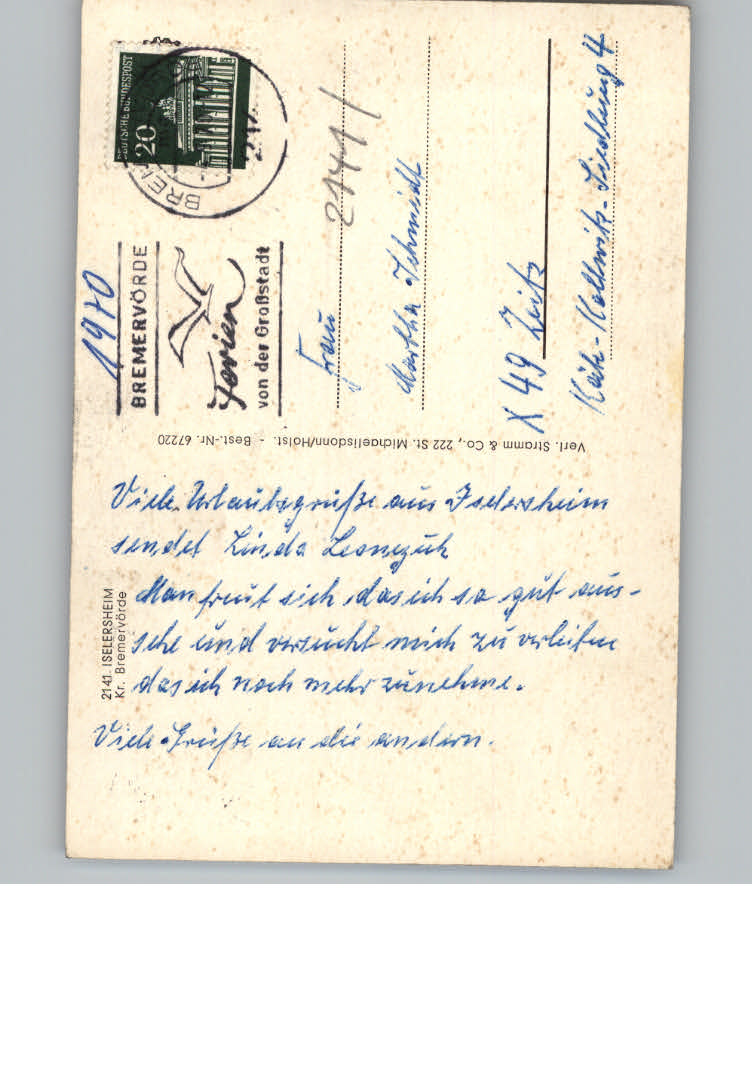 1970
DEUTSCHE BUNDESPOST
20
BREM
BREMERVÖRDE
Ferien
von der Großstadt
2141/
Frau
Martha Schmidt
X 49 Zeitz
Käth-Kollwitz-Siedlung 4
Verl. Stramm & Co., 222 St. Michaelisdonn/Holst. - Best.-Nr. 67220
2141 ISELERSHEIM
Kr. Bremervörde
Viele Urlaubsgrüße aus Iselersheim
sendet Linda
Man freut sich das ich so gut aus-
sehe und versucht mich zu verleiten
das ich noch mehr zunehme.
Viele Grüße an die andern.